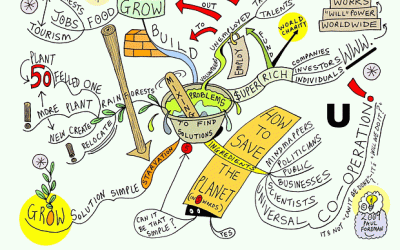 JOBS
FOOD
TOURISM
GROW
OUT
TO
UNEMPLOYED
TALENTS
WORLD
CHARITY
WORKS
"WILL" POWER
WORLDWIDE
WWW.
BUILD
EMPLOY
PLANT
50 FELLED ONE
MORE PLANT RAINFORESTS
NEW CREATE
RELOCATE
MIXING
PROBLEMS
TO FIND
SOLUTIONS
$UPER RICH
COMPANIES
INVESTORS
INDIVIDUALS
STARVATION
SOLUTION SIMPLE
GROW
CAN IT
BE THAT
SIMPLE?
YES
HOW TO
SAVE
THE
PLANET
(IN WORDS)
INGREDIENTS
MINDMAPPERS
POLITICIANS
PUBLIC
BUSINESSES
SCIENTISTS
UNIVERSAL
CO-OPERATION
U
IT'S NOT "CAN IT BE DONE"
2009
PAUL
FOREMAN